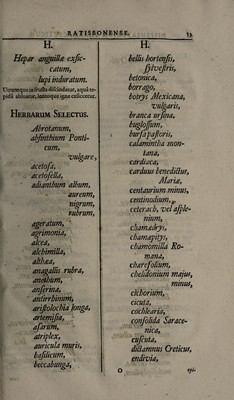 RATISBONENSE. 53
H.
Hepar anguillæ exsic-
catum,
lupi induratum.
Utrumque in frusta discindatur, aquâ te-
pidâ abluatur, lentoque igne exsiccetur.
HERBARUM SELECTUS.
Abrotanum,
absinthium Ponti-
cum,
vulgare,
acetosa,
acetosella,
adianthum album,
aureum,
nigrum,
rubrum,
ageratum,
agrimonia,
alcea,
alchimilla,
althæa,
anagallis rubra,
anethum,
anserina,
antirrhinum,
aristolochia longa,
artemisia,
asarum,
atriplex,
auricula muris,
basilicum,
beccabunga,
H.
bellis hortensis,
sylvestris,
betonica,
borrago,
botrys Mexicana,
vulgaris,
branca ursina,
buglossum,
bursa pastoris,
calamintha mon-
tana,
cardiaca,
carduus benedictus,
Mariæ,
centaurium minus,
centinodium,
ceterach, vel asple-
nium,
chamædrys,
chamæpitys,
chamomilla Ro-
mana,
charefolium,
chelidonium majus,
minus,
cichorium,
cicuta,
cochlearia,
consolida Sarace-
nica,
cuscuta,
dictamnus Creticus,
endivia,
O